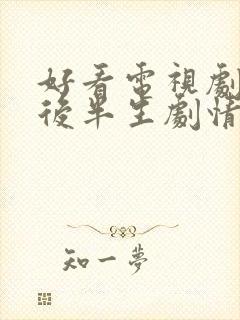 好看電視劇
後半生劇情
知一夢